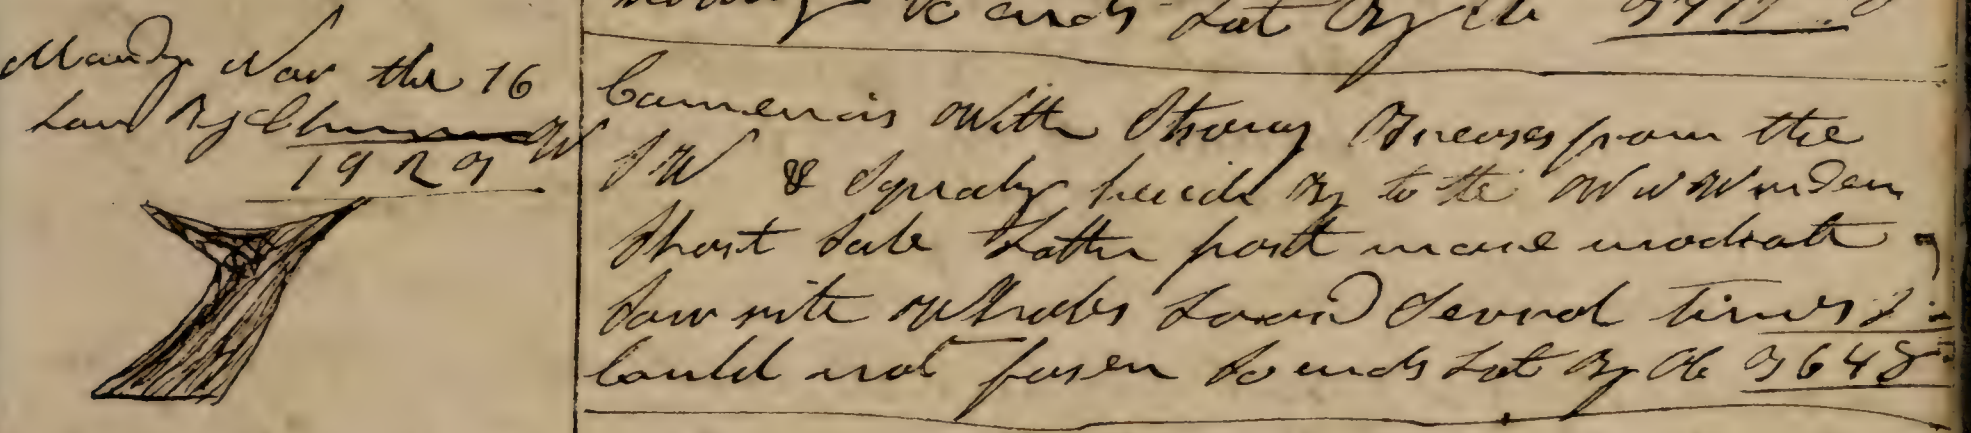 So ends Lat By Ob
Monday Nov the 16
Lon By Chronom W
19 29
Comences With Strong Breeses from the
SW & Squaly heads By to the W N W under
Short Sale Latter part more modrate
Saw rite Whales Lowrd Sevral times
Could not fasen So ends Lat By Ob 3648